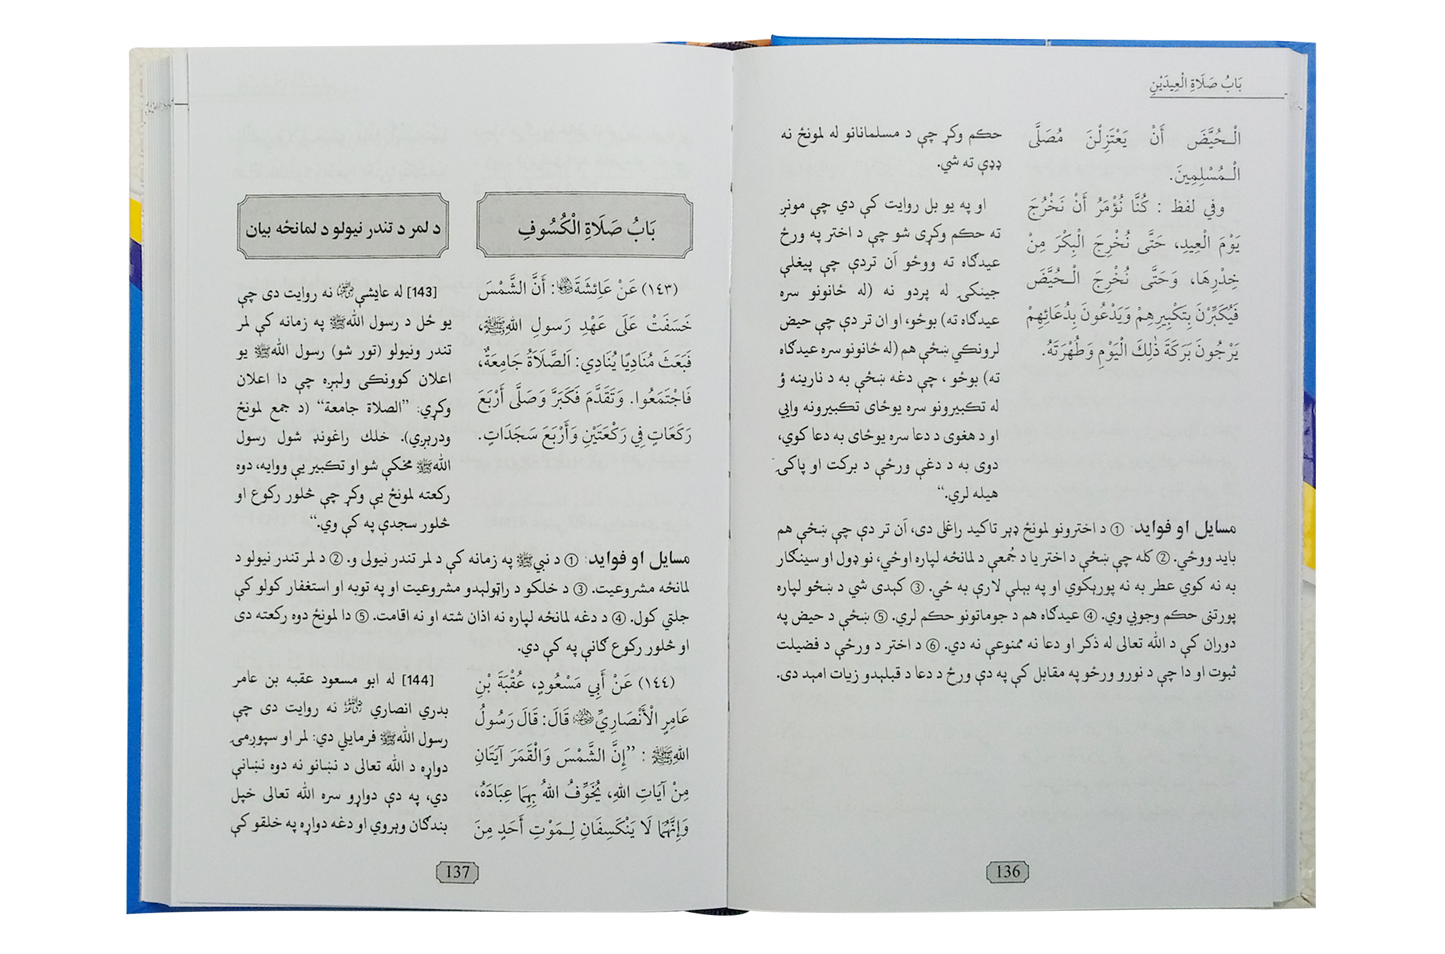 بَابُ صَلَاةِ الْعِيدَيْنِ
الْـحُيَّضَ أَنْ يَعْتَزِلْنَ مُصَلَّى
الْـمُسْلِمِينَ.
وفي لفظ : كُنَّا نُؤْمَرُ أَنْ نَخْرُجَ
يَوْمَ الْعِيدِ، حَتَّى نُخْرِجَ الْبِكْرَ مِنْ
خِدْرِهَا، وَحَتَّى نُخْرِجَ الْـحُيَّضَ
فَيُكَبِّرْنَ بِتَكْبِيرِهِمْ وَيَدْعُونَ بِدُعَائِهِمْ
يَرْجُونَ بَرَكَةَ ذٰلِكَ الْيَوْمِ وَطُهْرَتَهُ.
حکم وکړ چې د مسلمانانو له لمونځ نه
ډډې ته شي.
او په یو بل روایت کې دي چې مونږ
ته حکم وکړی شو چې د اختر په ورځ
عیدګاه ته ووځو اَن تردې چې پیغلې
جینکۍ له پردو نه (له ځانونو سره
عیدګاه ته) بوځو، او ان تر دې چې حیض
لرونکي ښځې هم (له ځانونو سره عیدګاه
ته) بوځو ، چې دغه ښځې به د نارینه ؤ
له تکبیرونو سره یوځای تکبیرونه وایي
او د هغوی د دعا سره یوځای به دعا کوي،
دوی به د دغې ورځې د برکت او پاکۍ
هیله لري.“
مسایل او فواید: ① د اخترونو لمونځ ډېر تاکید راغلی دی، اَن تر دې چې ښځې هم
باید ووځي. ② کله چې ښځې د اختر یا د جُمعې د لمانځه لپاره اوځي، نو ډول او سینګار
به نه کوي عطر به نه پورېکوي او په بېلې لارې به ځي. ③ کېدی شي د ښځو لپاره
پورتنی حکم وجوبي وي. ④ عیدګاه هم د جوماتونو حکم لري. ⑤ ښځې د حیض په
دوران کې د الله تعالی له ذکر او دعا نه ممنوعې نه دي. ⑥ د اختر د ورځې د فضیلت
ثبوت او دا چې د نورو ورځو په مقابل کې په دې ورځ د دعا د قبلېدو زیات امېد دی.
136
بَابُ صَلَاةِ الْكُسُوفِ
د لمر د تندر نیولو د لمانځه بیان
(١٤٣) عَنْ عَائِشَةَ رضي الله عنها: أَنَّ الشَّمْسَ
خَسَفَتْ عَلَى عَهْدِ رَسولِ اللهِ ﷺ،
فَبَعَثَ مُنَادِيًا يُنَادِي: اَلصَّلَاةُ جَامِعَةٌ،
فَاجْتَمَعُوا. وَتَقَدَّمَ فَكَبَرَّ وَصَلَّى أَرْبَعَ
رَكَعَاتٍ فِي رَكْعَتَيْنِ وَأَرْبَعَ سَجَدَاتٍ.
[143] له عایشې رضي الله عنها نه روایت دی چې
یو ځل د رسول الله ﷺ په زمانه کې لمر
تندر ونیولو (تور شو) رسول الله ﷺ یو
اعلان کوونکی ولېږه چې دا اعلان
وکړي: ”الصلاة جامعة“ (د جمع لمونځ
ودرېږي). خلك راغونډ شول رسول
الله ﷺ مخکې شو او تکبیر یې ووایه، دوه
رکعته لمونځ یې وکړ چې څلور رکوع او
څلور سجدې په کې وي.“
مسایل او فواید: ① د نبي ﷺ په زمانه کې د لمر تندر نیولی و. ② د لمر تندر نیولو د
لمانځه مشروعیت. ③ د خلکو د راټولېدو مشروعیت او په توبه او استغفار کولو کې
جلتي کول. ④ د دغه لمانځه لپاره نه اذان شته او نه اقامت. ⑤ دا لمونځ دوه رکعته دی
او څلور رکوع ګانې په کې دي.
(١٤٤) عَنْ أَبِي مَسْعُودٍ، عُقْبَةَ بْنِ
عَامِرٍ الْأَنْصَارِيِّ رضي الله عنه قَالَ: قَالَ رَسُولُ
اللهِ ﷺ : ”إِنَّ الشَّمْسَ وَالْقَمَرَ آيَتَانِ
مِنْ آيَاتِ اللهِ، يُخَوِّفُ اللهُ بِهِمَا عِبَادَهُ،
وَإِنَّهُمَا لَا يَنْكَسِفَانِ لِـمَوْتِ أَحَدٍ مِنَ
[144] له ابو مسعود عقبه بن عامر
بدري انصاري رضي الله عنه نه روایت دی چې
رسول الله ﷺ فرمایلي دي: لمر او سپوږمۍ
دواړه د الله تعالی د نښانو نه دوه نښانې
دي، په دې دواړو سره الله تعالی خپل
بندګان وېروي او دغه دواړه په خلقو کې
137